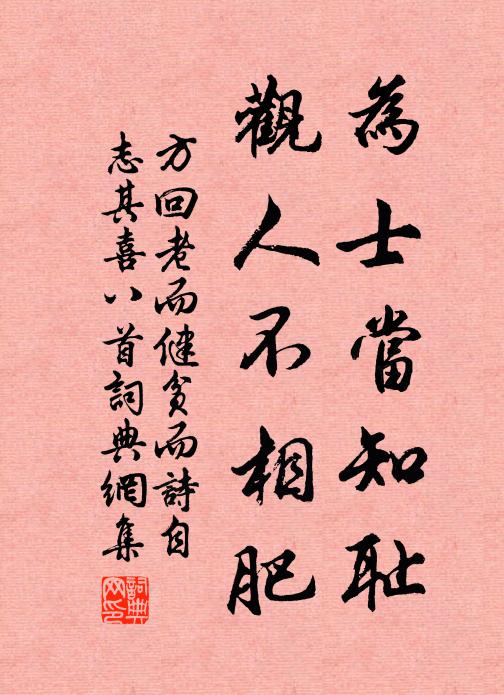 為士當知耻
觀人不相肥
方回老而健貧而詩自
志其喜八首詞典網集
詞典
网印